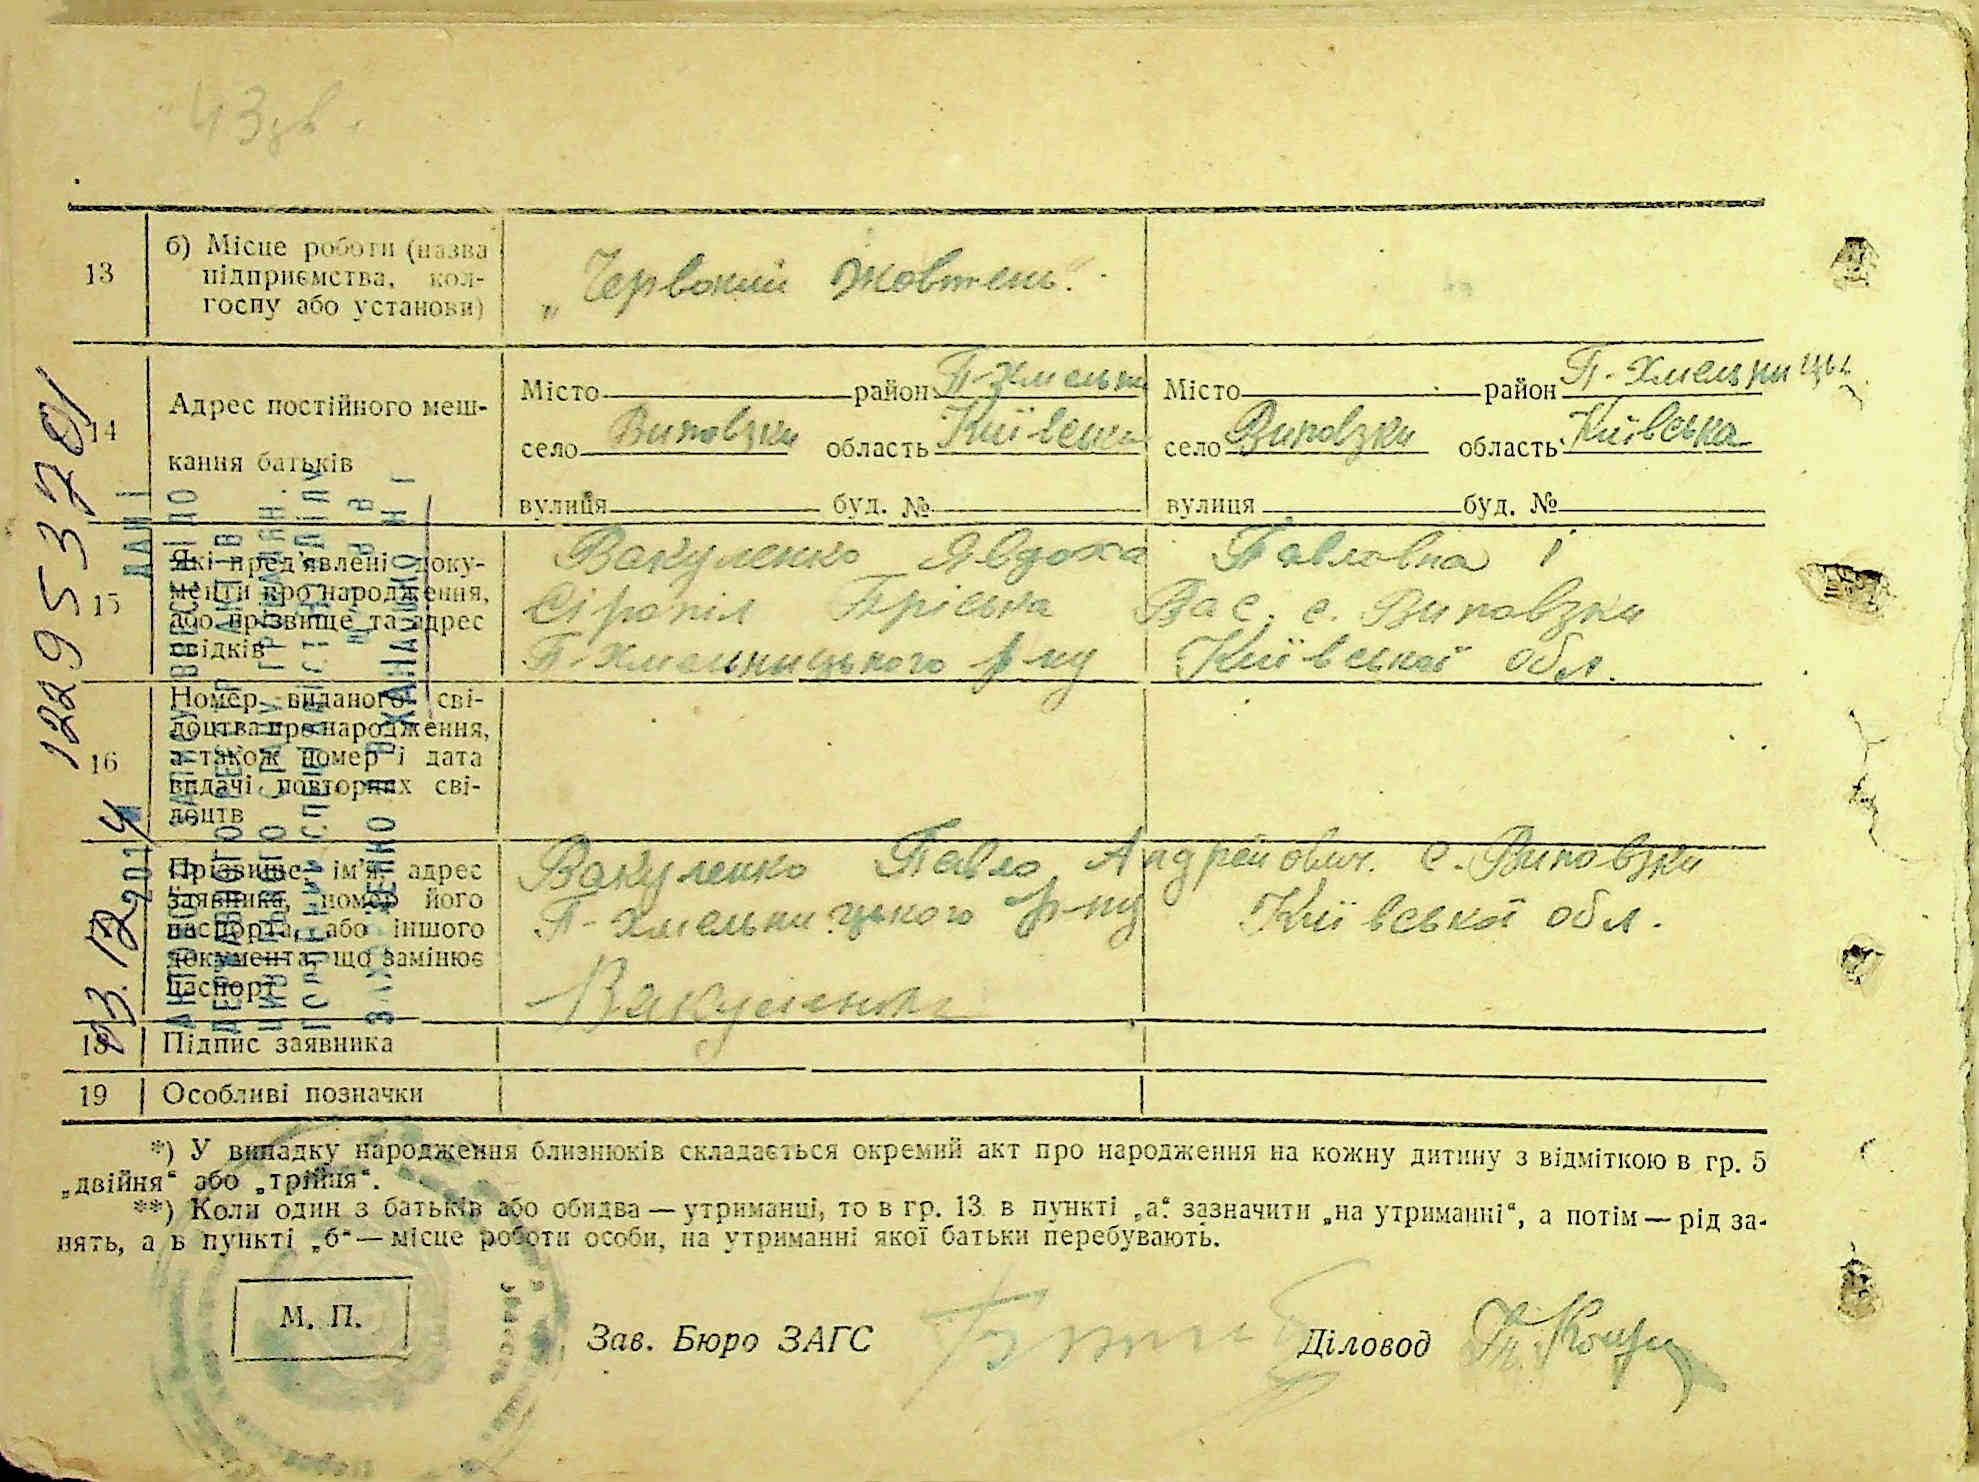 13
б) Місце роботи (назва
підприємства, кол-
госпу або установи)
„Червоний Жовтень".
14
Адрес постійного меш-
кання батьків
Місто район П-Хмельни
село Виповзки область Київська
вулиця буд. №
Місто район П-Хмельницьк
село Виповзки область Київська
вулиця буд. №
15
Які пред'явлені доку-
менти про народження,
або прізвище та адрес
свідків
Вакуленко Явдоха Павловна і
Сіропіл Пріська Вас. с. Виповзки
П-Хмельницького р-ну Київської обл.
16
Номер виданого сві-
доцтва про народження,
а також номер і дата
видачі повторних сві-
доцтв
Прізвище, ім'я, адрес
заявника, номер його
паспорта, або іншого
документа, що замінює
паспорт
Вакуленко Павло Андрейович. с. Виповзки
П-Хмельницького р-ну Київської обл.
Вакуленко
18
Підпис заявника
19
Особливі позначки
*) У випадку народження близнюків складається окремий акт про народження на кожну дитину з відміткою в гр. 5
„двійня“ або „трійня“.
**) Коли один з батьків або обидва — утриманці, то в гр. 13 в пункті „а“ зазначити „на утриманні“, а потім — рід за-
нять, а в пункті „б“ — місце роботи особи, на утриманні якої батьки перебувають.
М. П.
Зав. Бюро ЗАГС
Діловод
12295370
03.12.2014